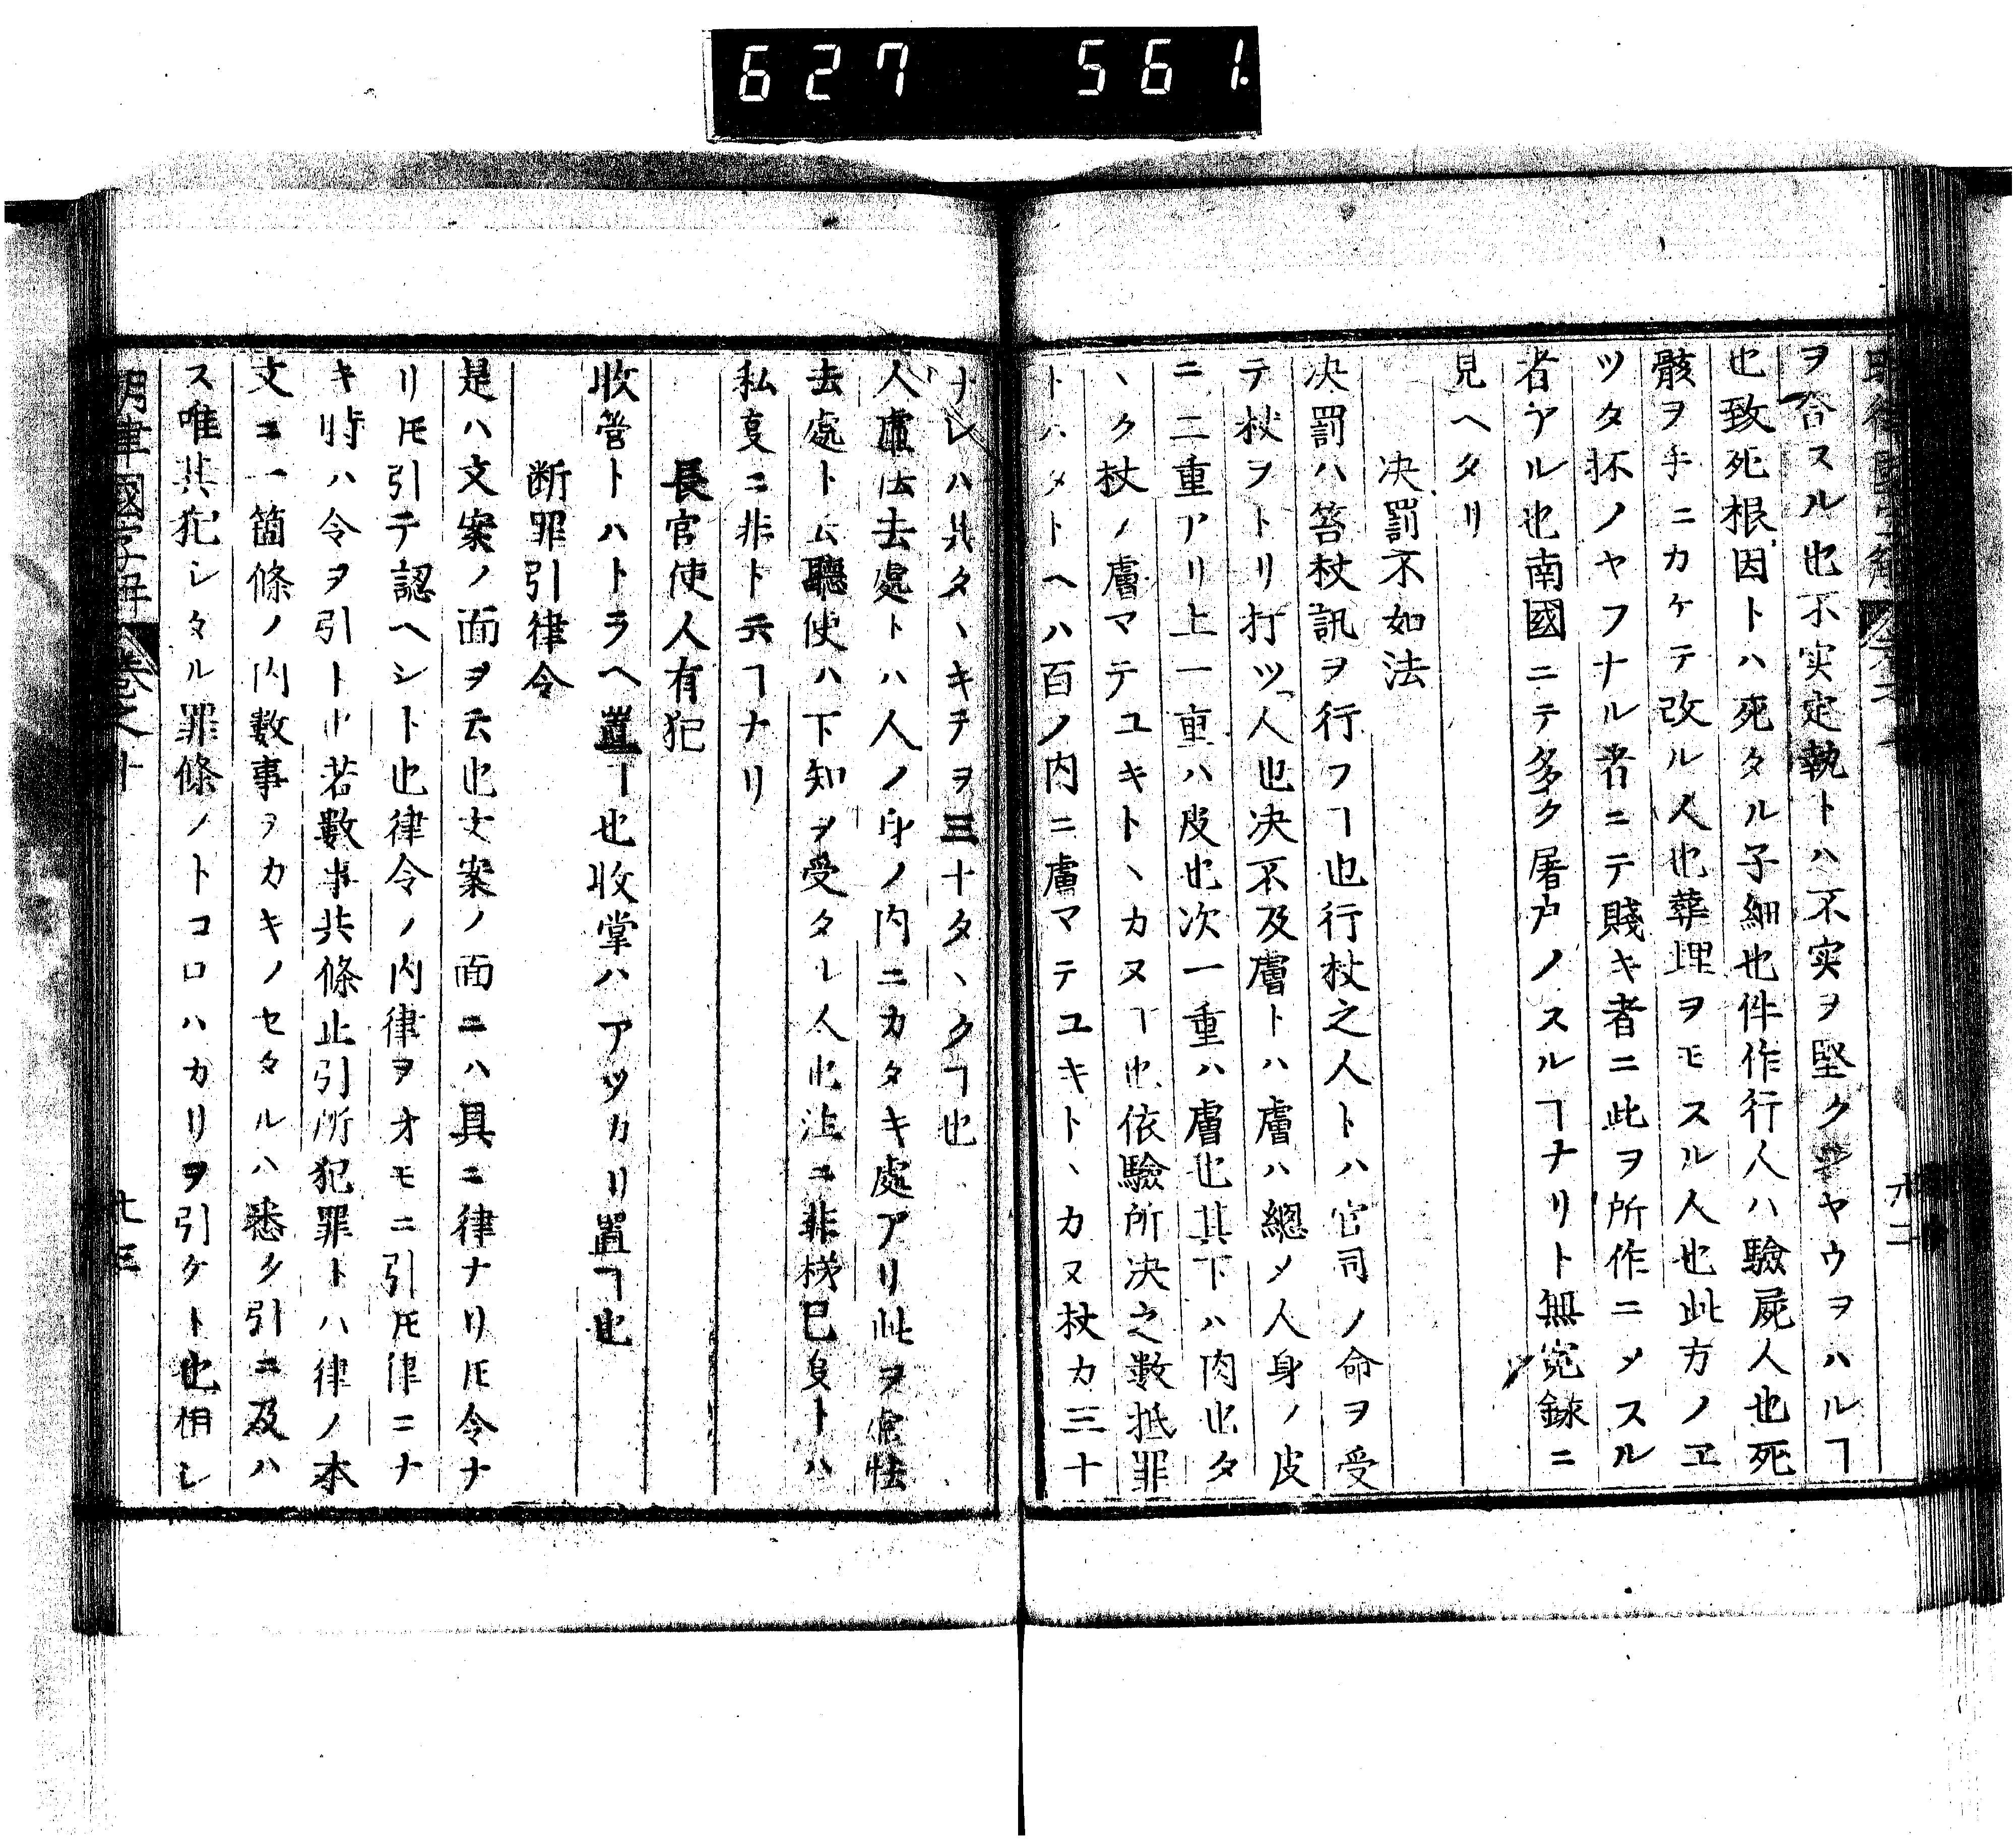 627 561
ヲ吝スル也不実定執トハ不実ヲ堅クヤウヲハルヿ
也致死根因トハ死タル子細也件作行人ハ驗屍人也死
骸ヲ手ニカケテ改ル人也葬埋ヲモスル人也此方ノヱ
ツタ抔ノヤフナル者ニテ賤キ者ニ此ヲ所作ニメスル
者アル也南國ニテ多ク屠户ノスルヿナリト無寃録ニ
見ヘタリ
决罰不如法
决罰ハ笞杖訊ヲ行フヿ也行杖之人トハ官司ノ命ヲ受
テ杖ヲトリ打ツ人也决不及膚トハ膚ハ總メ人身ノ皮
ニ二重アリ上一重ハ皮也次一重ハ膚也其下ハ肉也タ
ヽク杖ノ膚マテユキトヽカヌヿ也依驗所决之数抵罪
トハメトヘハ百ノ内ニ膚マテユキトヽカヌ杖カ三十
ナレハ其タヽキヲヲ三十タヽクヿ也
人虚怯去處トハ人ノ身ノ内ニカタキ處アリ此ヲ虚怯
去處ト云聽使ハ下知ヲ受タレ人也法ニ非梯已身トハ
私叓ニ非ト云ヿナリ
長官使人有犯
收管トハトラヘ置ヿ也收掌ハアツカリ置ヿ也
断罪引律令
是ハ文案ノ面ヲ云也文案ノ面ニハ具ニ律ナリ𪜈令ナ
リ𪜈引テ認ヘシト也律令ノ内律ヲオモニ引𪜈律ニナ
キ時ハ令ヲ引ト也若數事共條止引所犯罪トハ律ノ本
文ニ一箇條ノ内數事ヲカキノセタルハ悉ク引ニ及ハ
ス唯其犯シタル罪條ノトコロハカリヲ引ケト也相シ
明律國字解 巻之十 七三